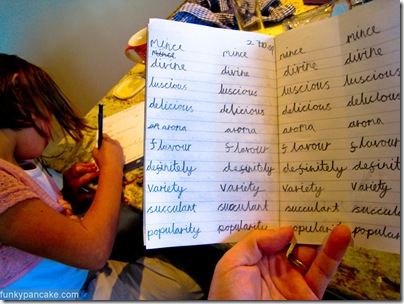 mince
mince
divine
luscious
delicious
an aroma
flavour
definitely
variety
succulant
popularity
mince
divine
luscious
delicious
aroma
flavour
definitely
variety
succulant
popularity
mince
divine
luscious
delicious
aroma
flavour
definitely
variety
succulant
popularity
mince
divine
luscious
delicious
aroma
flavour
definit
variety
succula
popular
funkypancake.com